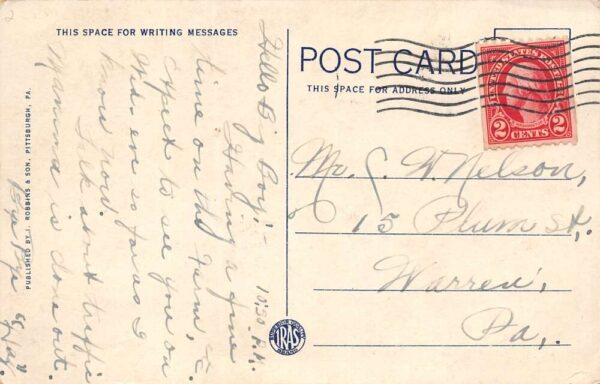 THIS SPACE FOR WRITING MESSAGES
Hello Big Boy:-
10:30 P.M.
Having a fine
time on the farm,
expect to see you on
Wed. even so far as I
know now.
Talk about traffic
Mamma is done out.
PUBLISHED BY I. ROBBINS & SON, PITTSBURGH, PA.
POST CARD
THIS SPACE FOR ADDRESS ONLY
UNITED STATES POSTAGE
2 CENTS 2
Mr. C. W. Nelson,
15 Plum St,.
Warren,
Pa,.
IRAS